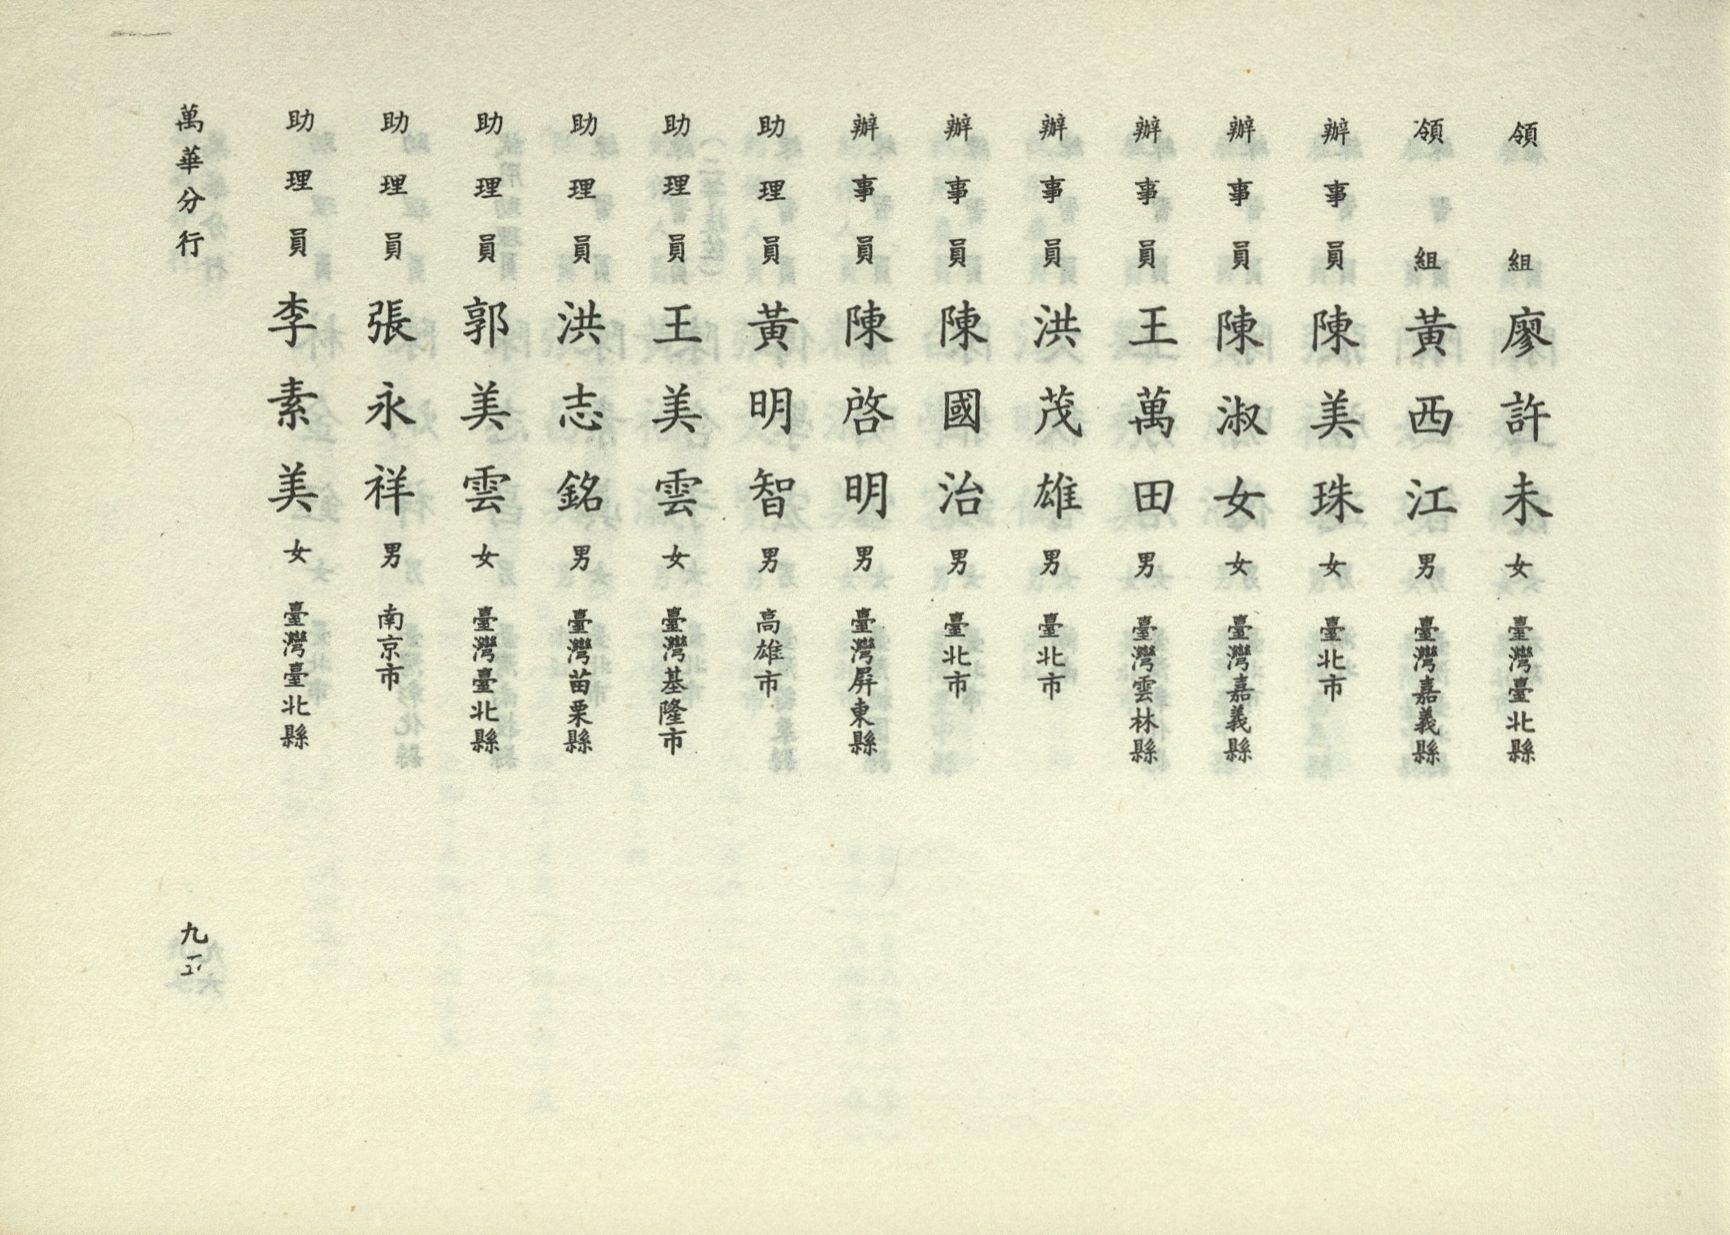 領組廖許未女臺灣臺北縣
領組黃西江男臺灣嘉義縣
辦事員陳美珠女臺北市
辦事員陳淑女女臺灣嘉義縣
辦事員王萬田男臺灣雲林縣
辦事員洪茂雄男臺北市
辦事員陳國治男臺北市
辦事員陳啓明男臺灣屏東縣
助理員黃明智男高雄市
助理員王美雲女臺灣基隆市
助理員洪志銘男臺灣苗栗縣
助理員郭美雲女臺灣臺北縣
助理員張永祥男南京市
助理員李素美女臺灣臺北縣
萬華分行
九五